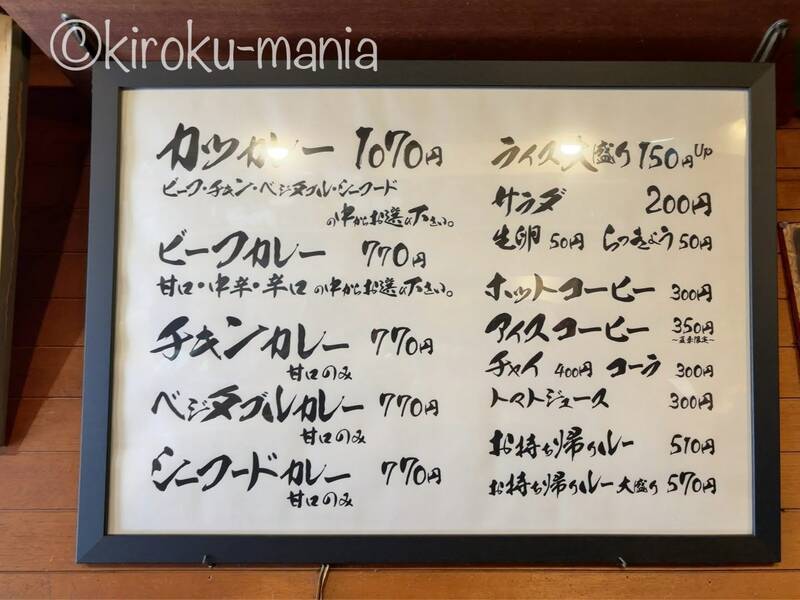 ©kiroku-mania
カツカレー 1070円
ビーフ・チキン・ベジタブル・シーフード
の中からお選び下さい。
ビーフカレー 770円
甘口・中辛・辛口の中からお選び下さい。
チキンカレー 770円
甘口のみ
ベジタブルカレー 770円
甘口のみ
シーフードカレー 770円
甘口のみ
ライス大盛り 150円up
サラダ 200円
生卵 50円 らっきょう 50円
ホットコーヒー 300円
アイスコーヒー 350円
～夏季限定～
チャイ 400円 コーラ 300円
トマトジュース 300円
お持ち帰りルー 510円
お持ち帰りルー大盛り 570円